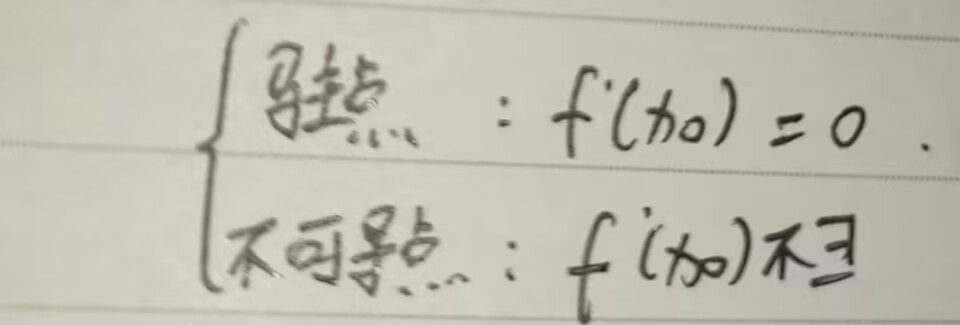 驻点 : f'(x₀) = 0 .
不可导点 : f'(x₀) 不∃